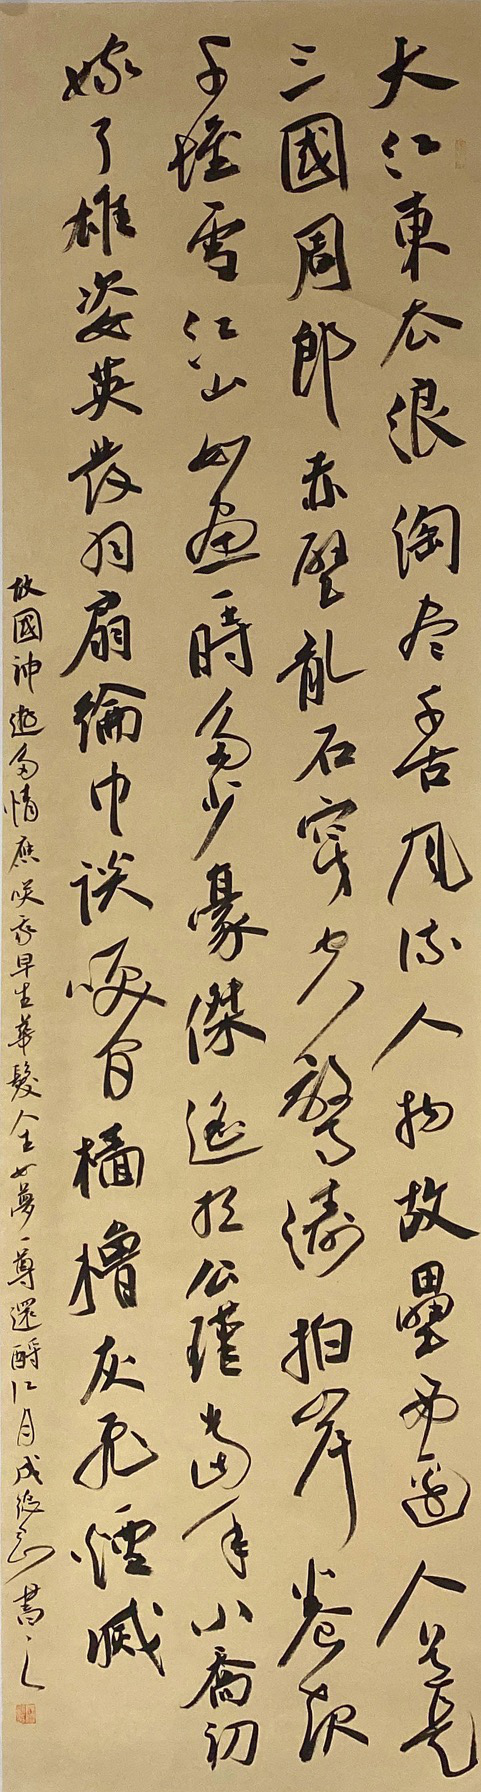 大江東去浪淘尽千古風流人物故壘西邊人道是
三國周郎赤壁亂石穿空驚濤拍岸卷起
千堆雪江山如畫一時多少豪傑遙想公瑾當年小喬初
嫁了雄姿英發羽扇綸巾談咲間檣櫓灰飛煙滅
故國神遊多情應咲我早生華髮人生如夢一尊還酹江月 書之